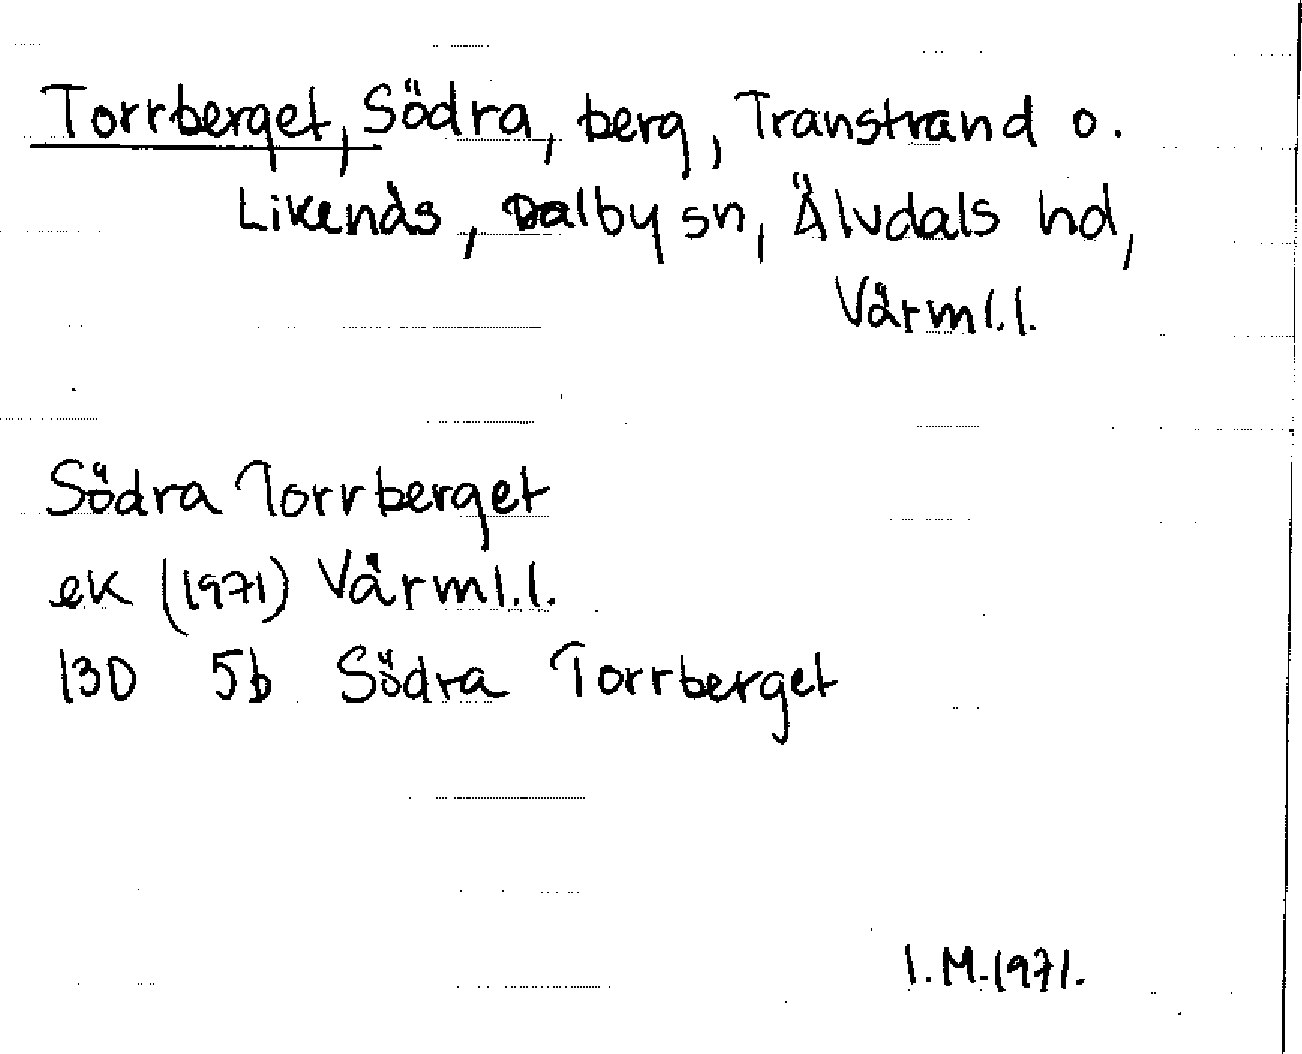 Torrberget, Södra, berg, Transtrand o.
Likenäs, Dalby sn, Älvdals hd,
Värml.l.
Södra Torrberget
ek (1971) Värml.l.
13D 5b Södra Torrberget
I.M.1971.